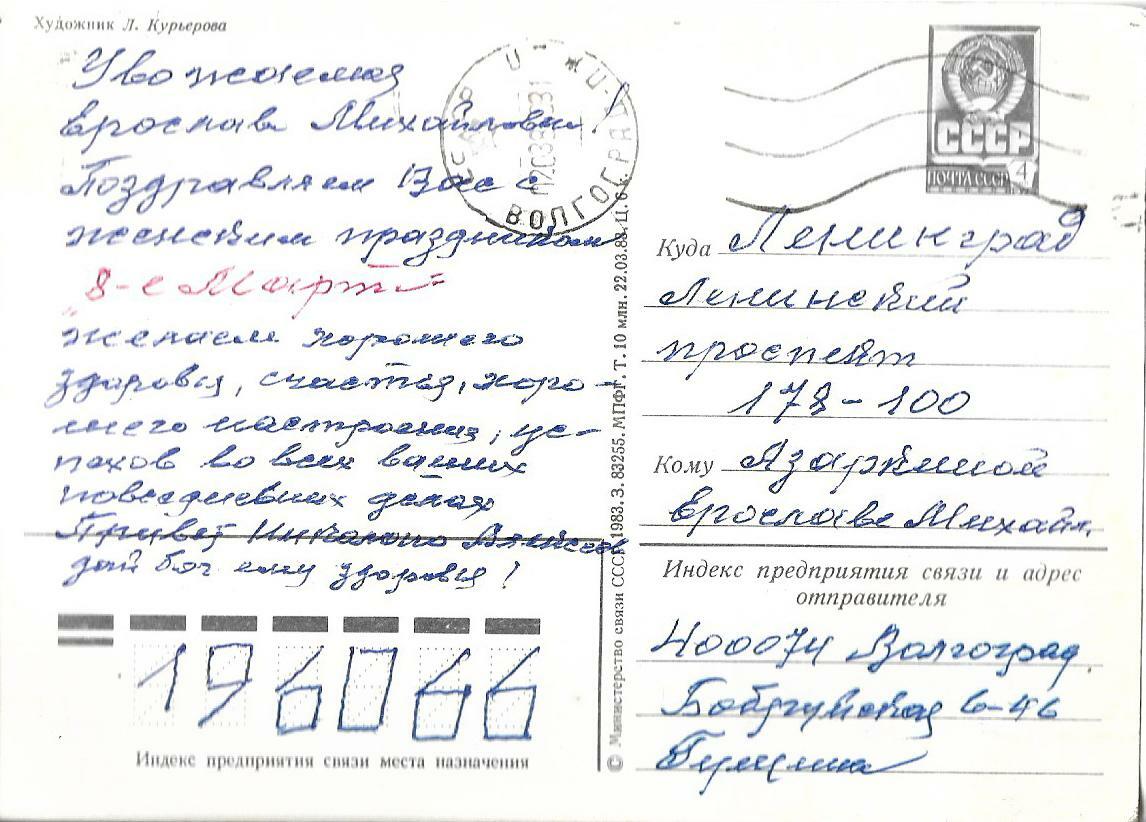 Художник Л. Курьерова
Уважаемая
Ярослава Михайловна!
Поздравляем Вас с
женским праздником
"8-е Марта"
желаем хорошего
здоровья, счастья, хоро-
шего настроения, ус-
пехов во всех ваших
повседневных делах
Привет Николаю Алексеев
дай бог ему здоровья!
196066
Индекс предприятия связи места назначения
СССР
ВОЛГОГРАД
© Министерство связи СССР. 1983. З. 83255. МПФГ. Т. 10 млн. 22.03.83. Ц. 6 к.
СССР
4
ПОЧТА СССР
Куда Ленинград
Ленинский
проспект
178-100
Кому Азаркиной
Ярославе Михайл.
Индекс предприятия связи и адрес
отправителя
400074 Волгоград
6-46